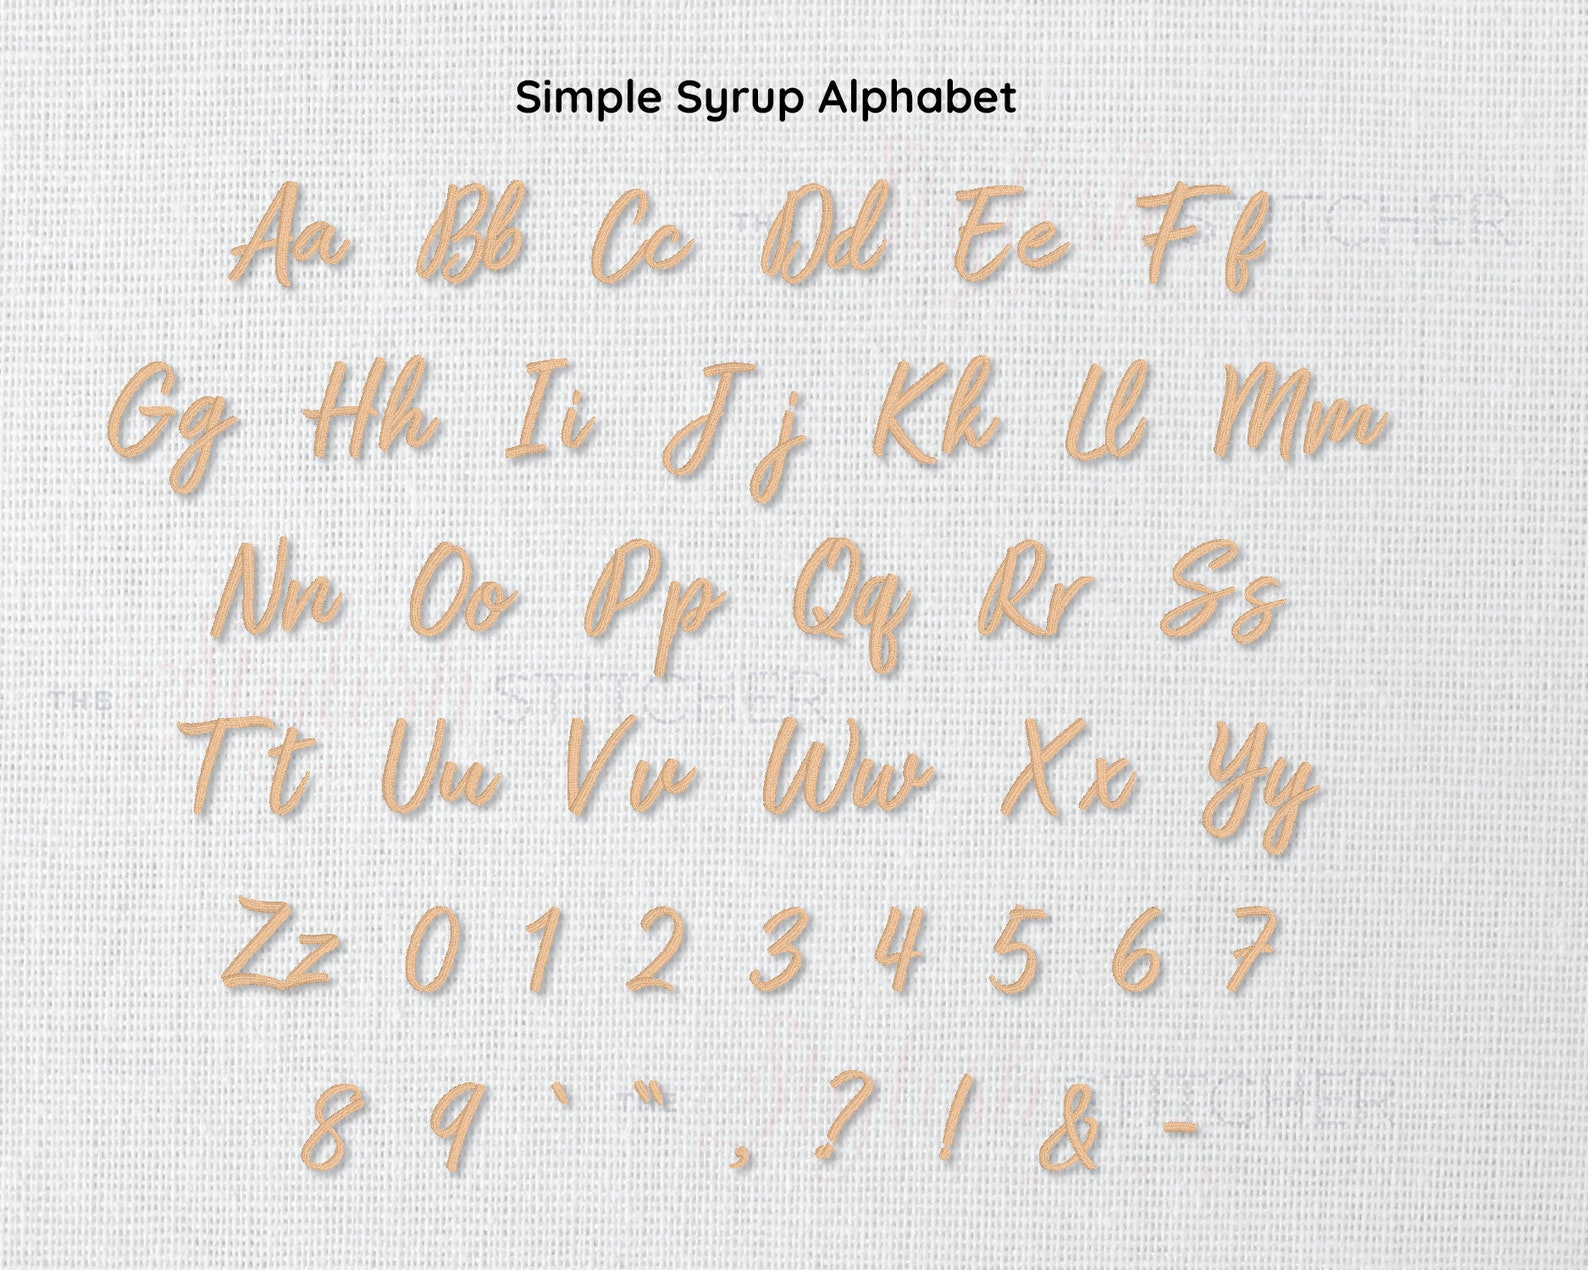 Simple Syrup Alphabet
Aa Bb Cc Dd Ee Ff
Gg Hh Ii Jj Kk Ll Mm
Nn Oo Pp Qq Rr Ss
THE STITCHER
Tt Uu Vv Ww Xx Yy
Zz 0 1 2 3 4 5 6 7
8 9 ` “ , ? ! & -